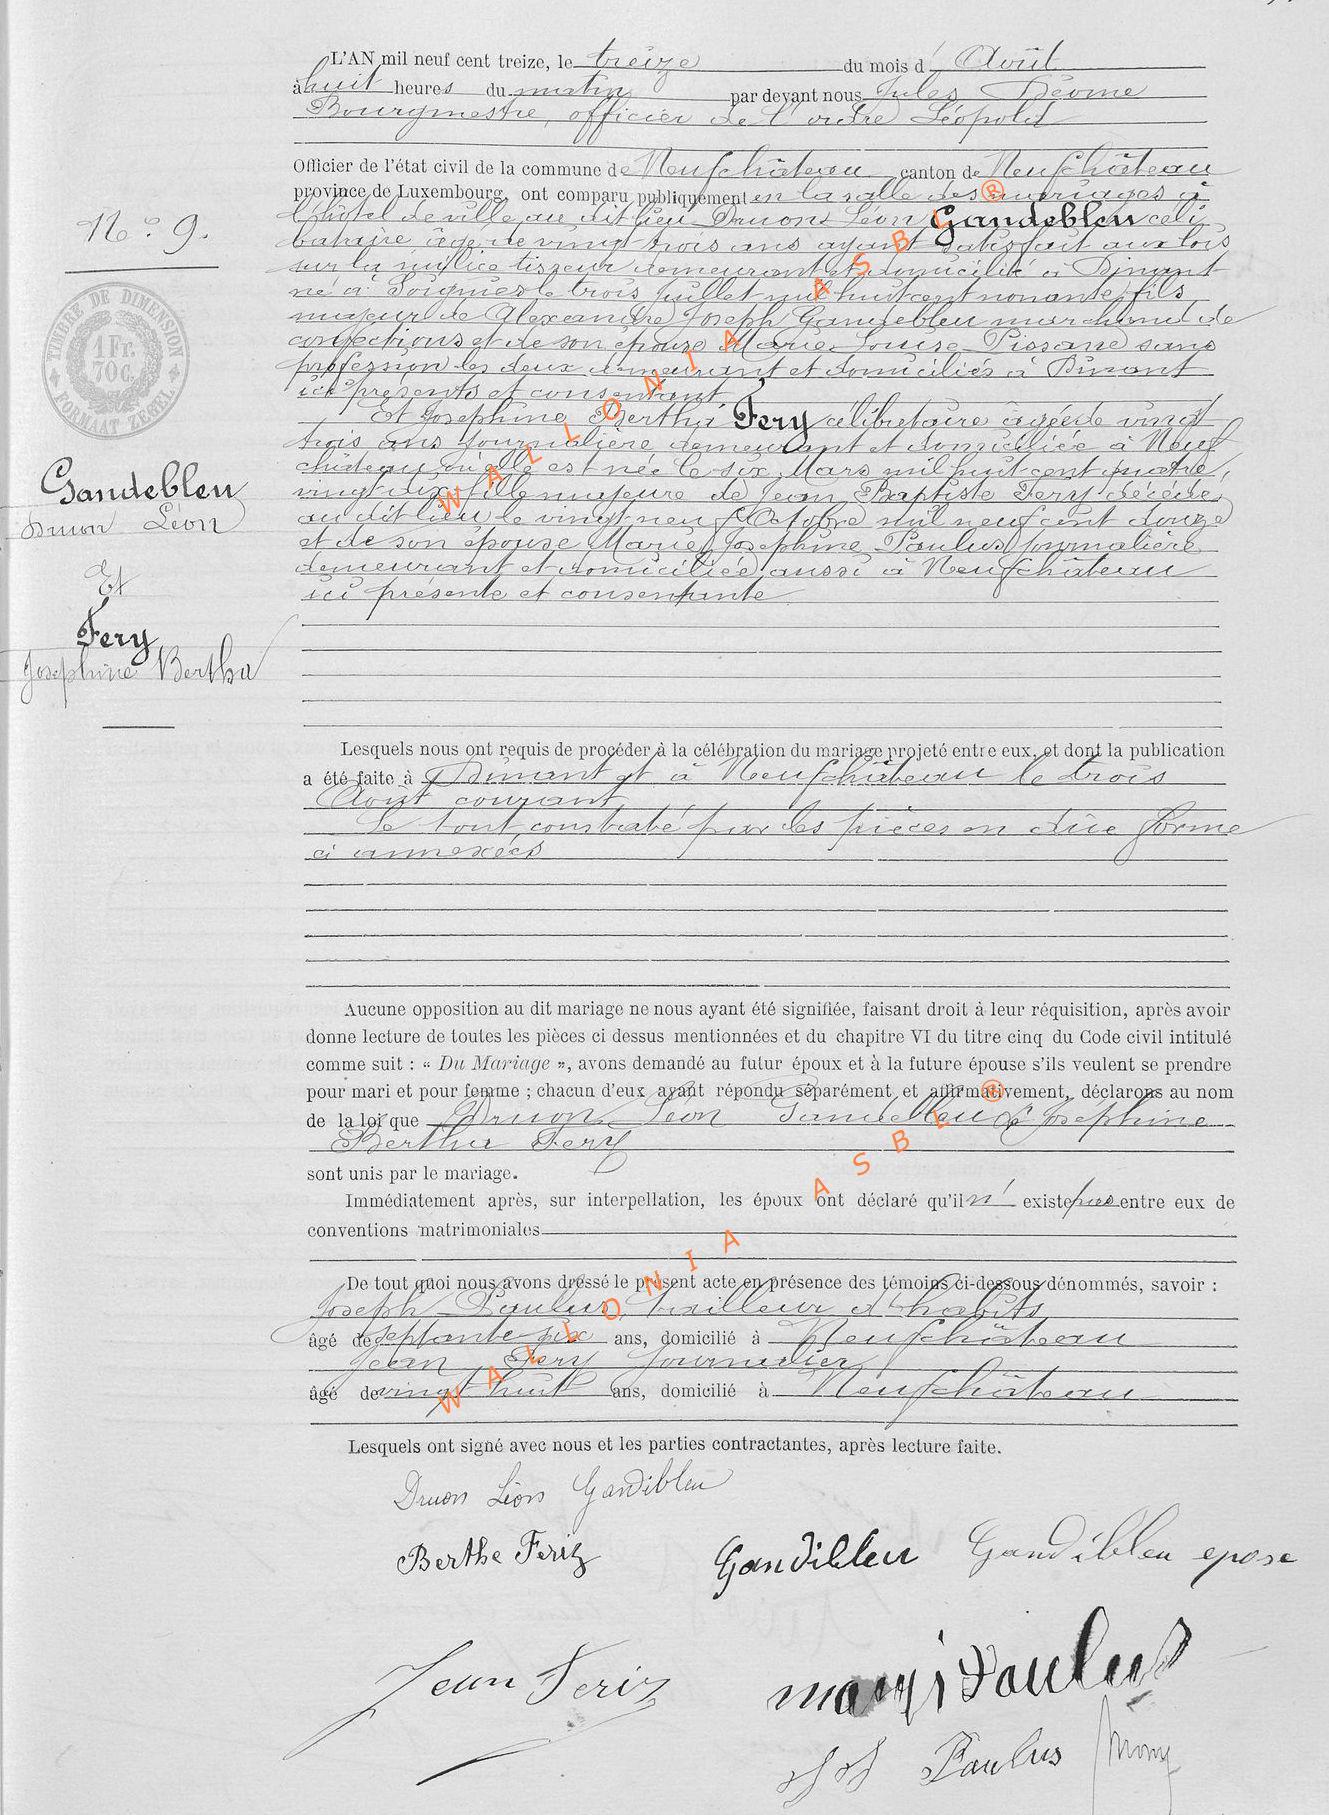 L'AN mil neuf cent treize, le treize du mois d' Août
à huit heures du matin par devant nous Jules
Bourgmestre, officier de l'ordre Léopold
Officier de l'état civil de la commune de Neufchâteau canton de Neufchâteau
province de Luxembourg, ont comparu publiquement en la salle des mariages à
l'hôtel de ville au dit lieu Druon Léon Gandebleu céli
bataire âgé de vingt trois ans ayant satisfait aux lois
sur la milice tisseur demeurant et domicilié à Dinant
né à Soignies le trois Juillet mil huit cent nonante, fils
majeur de Alexandre Joseph Gandebleu marchand de
confections et de son épouse Marie Louise Pissane sans
profession les deux demeurant et domiciliés à Dinant
ici présents et consentant
Et Joséphine Bertha Fery célibataire âgée de vingt
trois ans journalière demeurant et domiciliée à Neuf
château où elle est née le six Mars mil huit cent quatre
vingt dix fille majeure de Jean Baptiste Fery décédé
au dit lieu le vingt neuf Octobre mil neuf cent douze
et de son épouse Marie Joséphine Paulus journalière
demeurant et domiciliée aussi à Neufchâteau
ici présente et consentante
N° 9.
TIMBRE DE DIMENSION
1 Fr.
70 C.
FORMAAT ZEGEL
Gandebleu
Druon Léon
Et
Fery
Joséphine Bertha
Lesquels nous ont requis de procéder à la célébration du mariage projeté entre eux, et dont la publication
a été faite à Dinant et à Neufchâteau le trois
Août courant
Le tout constaté par les pièces en dûe forme
ci annexées
Aucune opposition au dit mariage ne nous ayant été signifiée, faisant droit à leur réquisition, après avoir
donne lecture de toutes les pièces ci dessus mentionnées et du chapitre VI du titre cinq du Code civil intitulé
comme suit : « Du Mariage », avons demandé au futur époux et à la future épouse s'ils veulent se prendre
pour mari et pour femme ; chacun d'eux ayant répondu séparément et affirmativement, déclarons au nom
de la loi que Druon Léon Gandebleu & Joséphine
Bertha Fery
sont unis par le mariage.
Immédiatement après, sur interpellation, les époux ont déclaré qu'il n' existe pas entre eux de
conventions matrimoniales
De tout quoi nous avons dressé le présent acte en présence des témoins ci-dessous dénommés, savoir :
Joseph Paulus, tailleur d'habits
âgé de septante six ans, domicilié à Neufchâteau
Jean Fery Journalier
âgé de vingt huit ans, domicilié à Neufchâteau
Lesquels ont signé avec nous et les parties contractantes, après lecture faite.
Druon Léon Gandibleu
Berthe Feriz Gandibleu Gandibleu epose
Jean Feriz Paulus
Paulus
WALLONIA ASBL ®
WALLONIA ASBL ®